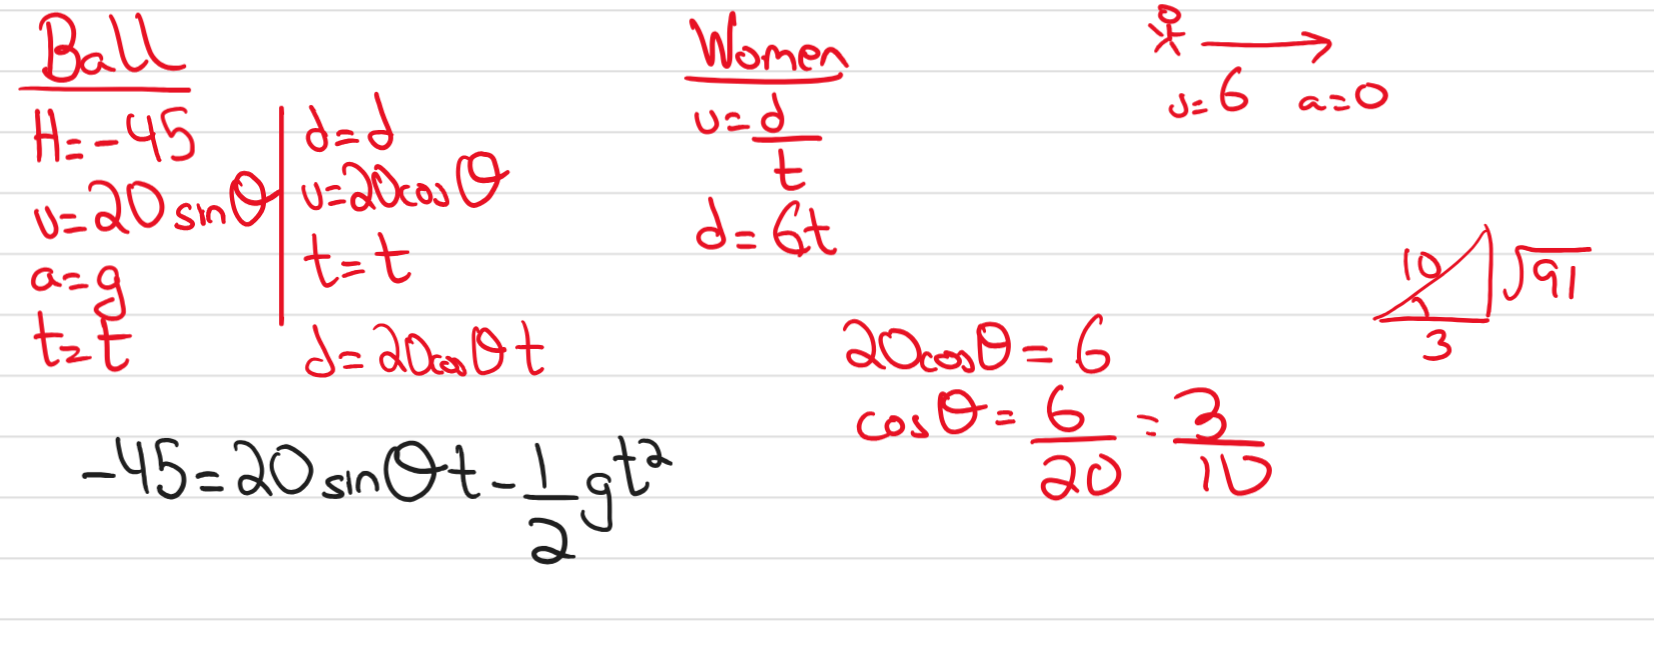 Ball
H=-45
u=20sinθ
a=g
t=t
d=d
u=20cosθ
t=t
d=20cosθt
-45=20sinθt-1/2gt²
Women
u=d/t
d=6t
20cosθ=6
cosθ=6/20=3/10
u=6 a=0
10
√91
3